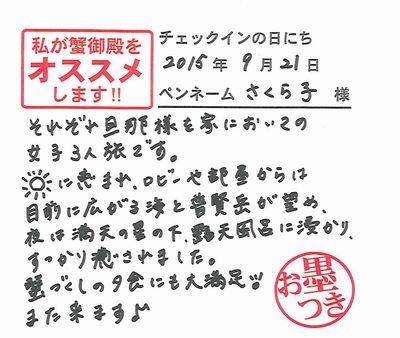 私が蟹御殿を
オススメ
します!!
チェックインの日にち
2015年 9月21日
ペンネーム さくら子 様
それぞれ旦那様を家においての
女子3人旅です。
に恵まれ、ロビーや部屋からは
目前に広がる海と普賢岳が望め、
夜は満天の星の下、露天風呂に浸かり、
すっかり癒されました。
蟹づくしの夕食にも大満足!!
また来ます♪
お墨つき